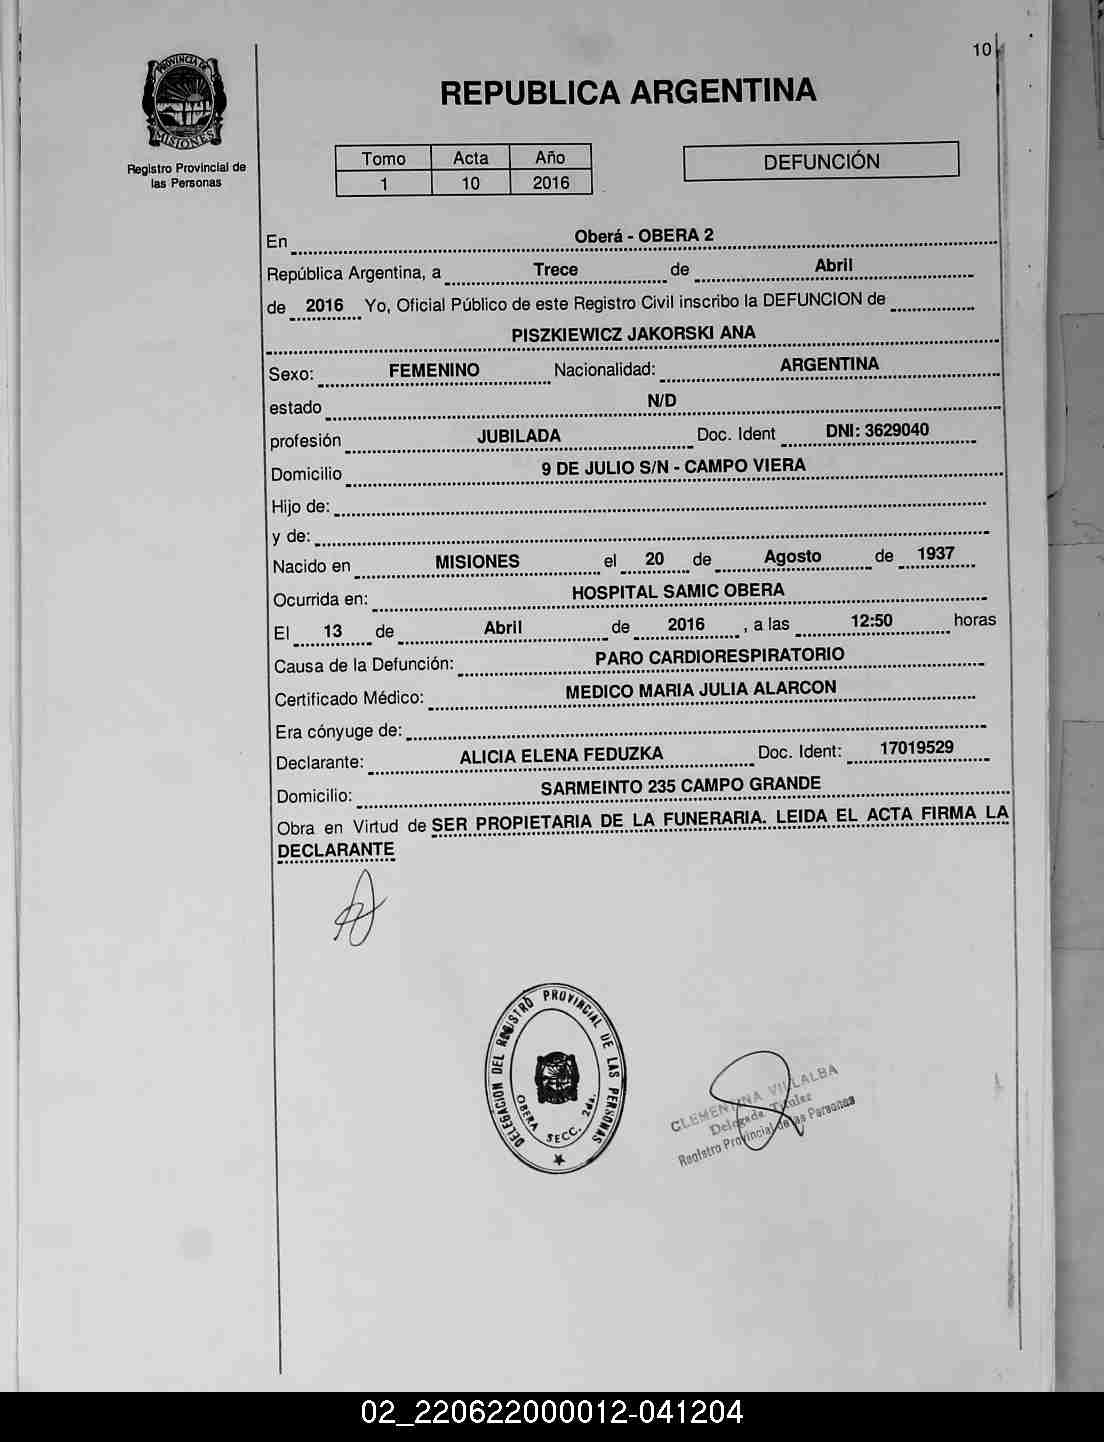 10
PROVINCIA DE
MISIONES
Registro Provincial de
las Personas
REPUBLICA ARGENTINA
Tomo Acta Año
1 10 2016
DEFUNCIÓN
En Oberá - OBERA 2
República Argentina, a Trece de Abril
de 2016 Yo, Oficial Público de este Registro Civil inscribo la DEFUNCION de
PISZKIEWICZ JAKORSKI ANA
Sexo: FEMENINO Nacionalidad: ARGENTINA
estado N/D
profesión JUBILADA Doc. Ident DNI: 3629040
Domicilio 9 DE JULIO S/N - CAMPO VIERA
Hijo de:
y de:
Nacido en MISIONES el 20 de Agosto de 1937
Ocurrida en: HOSPITAL SAMIC OBERA
El 13 de Abril de 2016 , a las 12:50 horas
Causa de la Defunción: PARO CARDIORESPIRATORIO
Certificado Médico: MEDICO MARIA JULIA ALARCON
Era cónyuge de:
Declarante: ALICIA ELENA FEDUZKA Doc. Ident: 17019529
Domicilio: SARMEINTO 235 CAMPO GRANDE
Obra en Virtud de SER PROPIETARIA DE LA FUNERARIA. LEIDA EL ACTA FIRMA LA
DECLARANTE
DELEGACION DEL REGISTRO PROVINCIAL DE LAS PERSONAS
OBERA SECC. 2da.
CLEMENTINA VILLALBA
Delegada Titular
Registro Provincial de las Personas
02_220622000012-041204